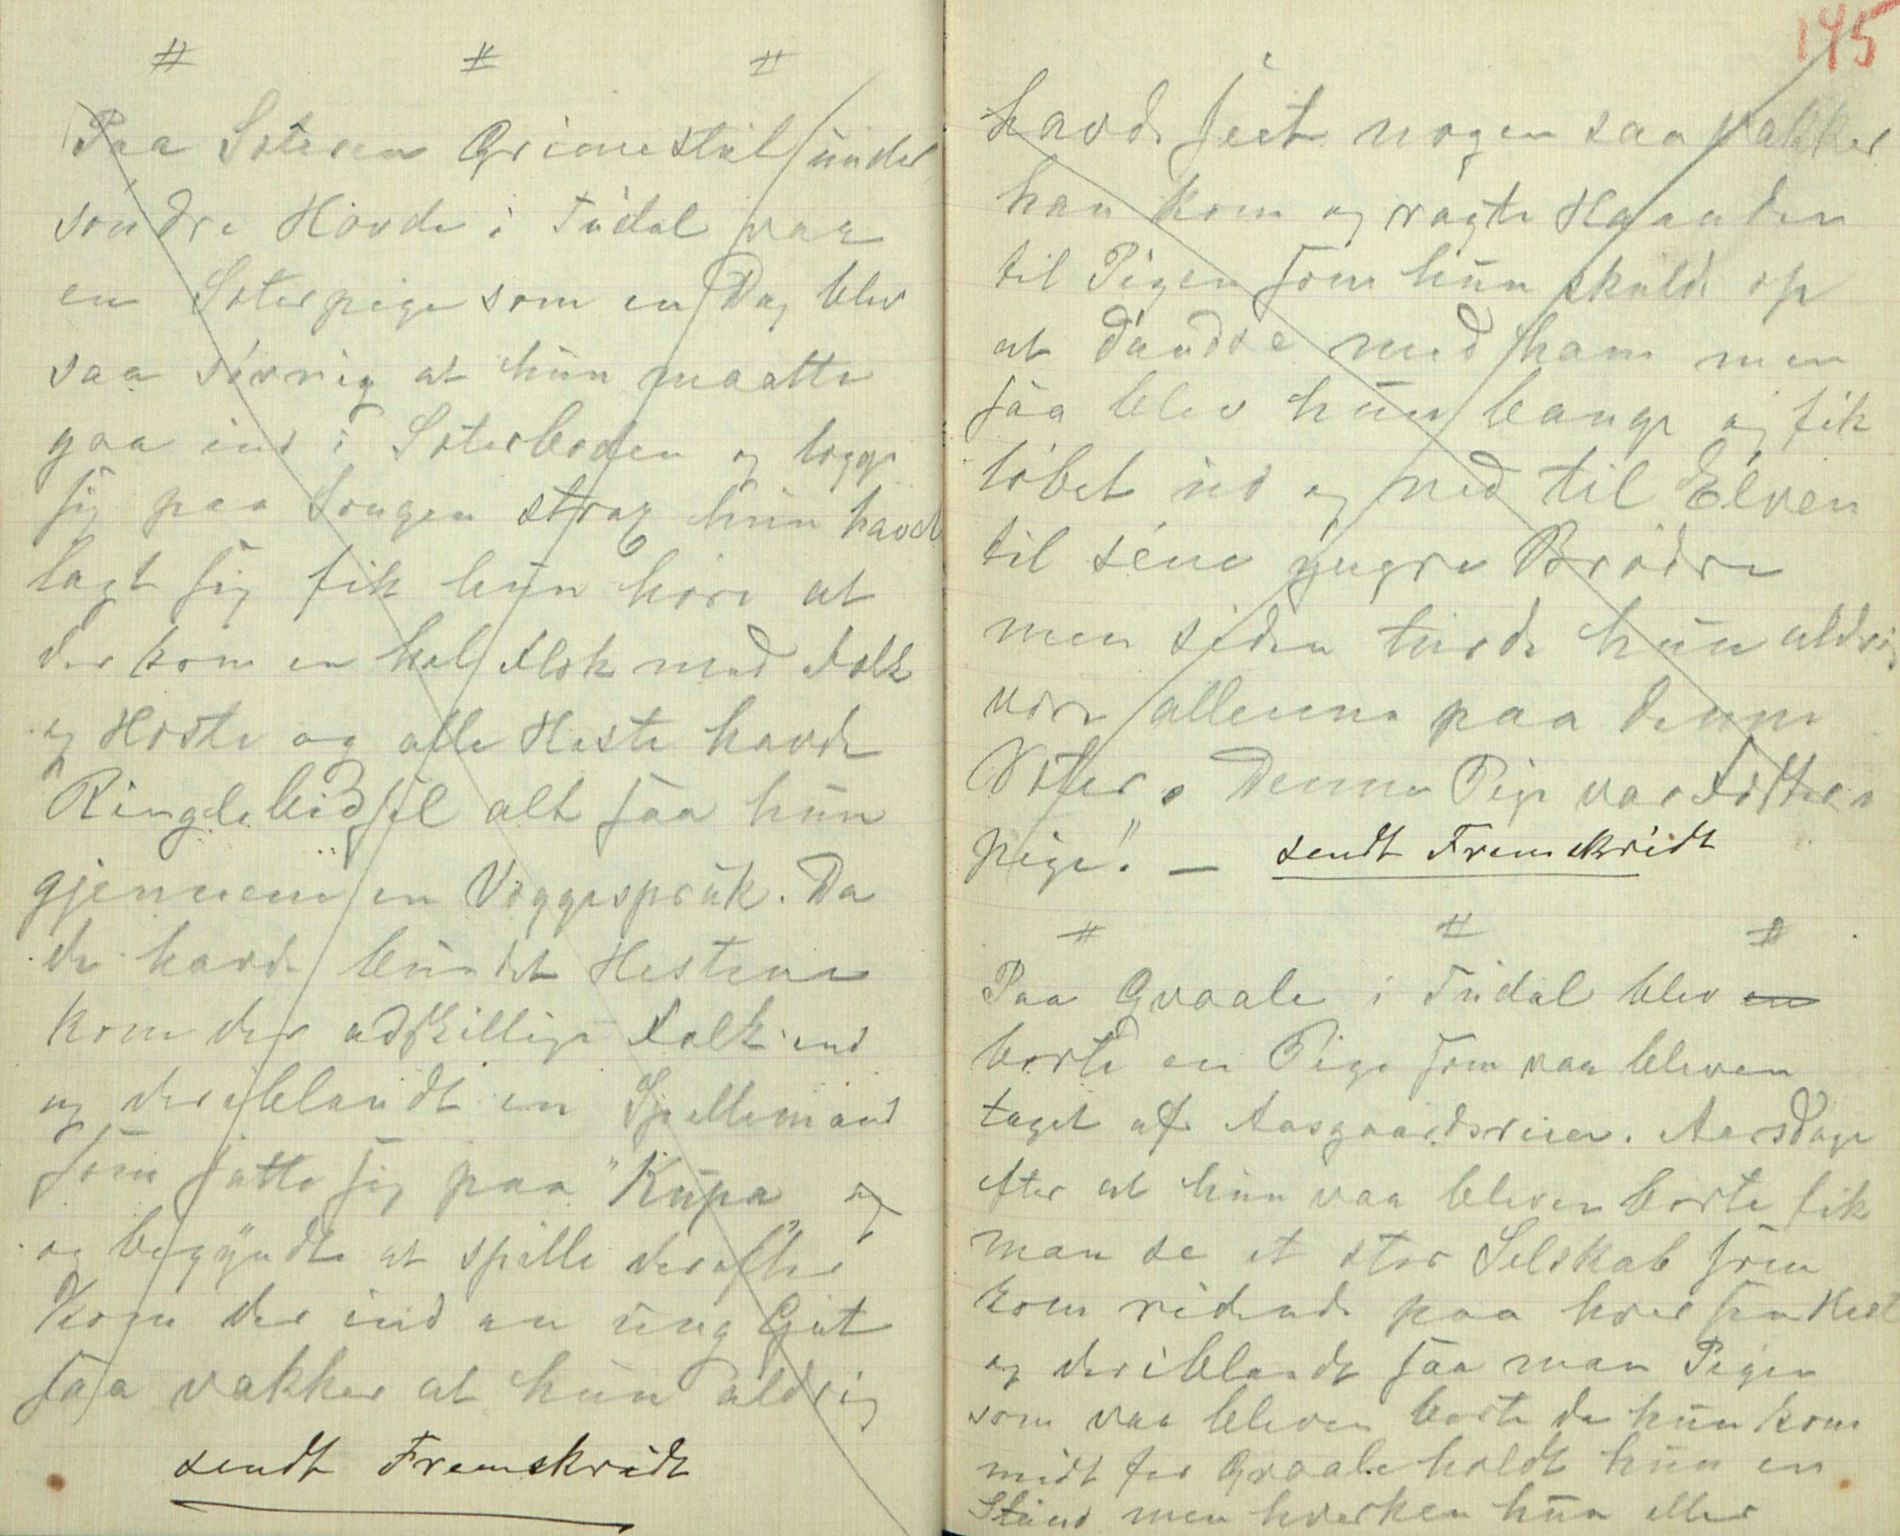 # # #
Paa Sæteren Grimestul under
søndre Hovde i Tudal var
en Sæterpige som en Dag blev
saa sövnig at hun maatte
gaa ind i Sæterboden og lægge
sig paa Sengen strax hun havde
lagt sig fik hun høre at
der kom en hel Flok med Folk
og Heste og alle Heste havde
Ringlebidsel alt saa hun
gjennem en Væggespruk. Da
de havde bundet Hestene
kom der adskillige Folk ind
og deriblandt en Spillemand
som satte sig paa "Kupa" og
og begyndte at spille derefter
kom der ind en ung Gut
saa vakker at hun aldrig
sendt Fremskridt
145
havde seet nogen saa vakker
han kom og ragte Haanden
til Pigen som hun skulde op
at dandse med ham men
saa blev hun bange og fik
løbet ud og ned til Elven
til sene yngre Brødre
men siden turde hun aldrig
være alleene paa denne
Sæter. Denne Pige var Foster
pige". — sendt Fremskridt
# # #
Paa Gvaale i Tudal blev en
borte en Pige som var bleven
taget af Aasgaardsreien. Aarsdage
efter at hun vaa bleven borte fik
man se et stor Selskab som
kom ridende paa hver sin Hest
og deriblandt saa man Pigen
som vaa bleven borte da hun kom
midt for Gvaale holdt hun en
Stund men hverken hun eller